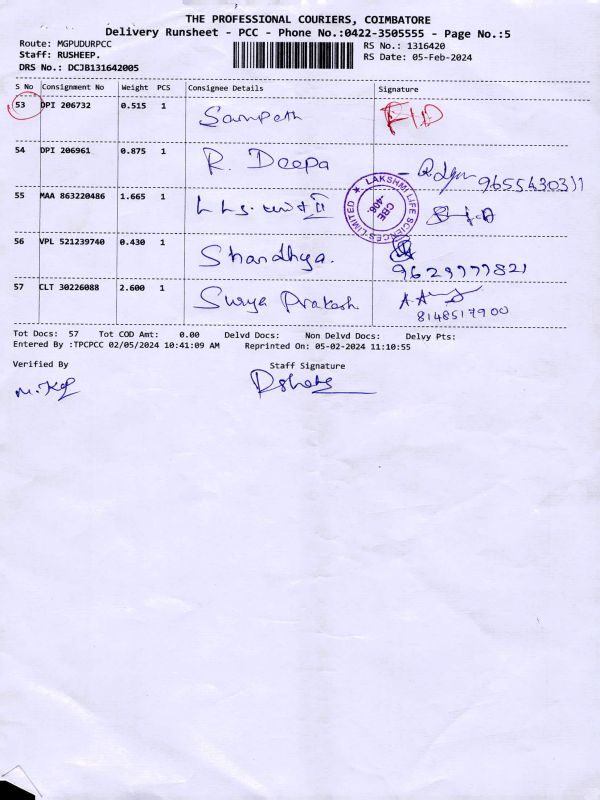 THE PROFESSIONAL COURIERS, COIMBATORE
Delivery Runsheet - PCC - Phone No.:0422-3505555 - Page No.:5
Route: MGPUDURPCC
RS No.: 1316420
Staff: RUSHEEP.
RS Date: 05-Feb-2024
DRS No.: DCJB131642005
S No Consignment No Weight PCS Consignee Details Signature
53 DPI 206732 0.515 1 Sampeth
54 DPI 206961 0.875 1 R. Deepa 9655430311
55 MAA 863220486 1.665 1 II
LAKSHMI LIFE SCIENCES LIMITED
CBE
-406.
56 VPL 521239740 0.430 1 Shandhya.
9629777821
57 CLT 30226088 2.600 1 Surya Prakash
8148517900
Tot Docs: 57 Tot COD Amt: 0.00 Delvd Docs: Non Delvd Docs: Delvy Pts:
Entered By :TPCPCC 02/05/2024 10:41:09 AM Reprinted On: 05-02-2024 11:10:55
Verified By Staff Signature